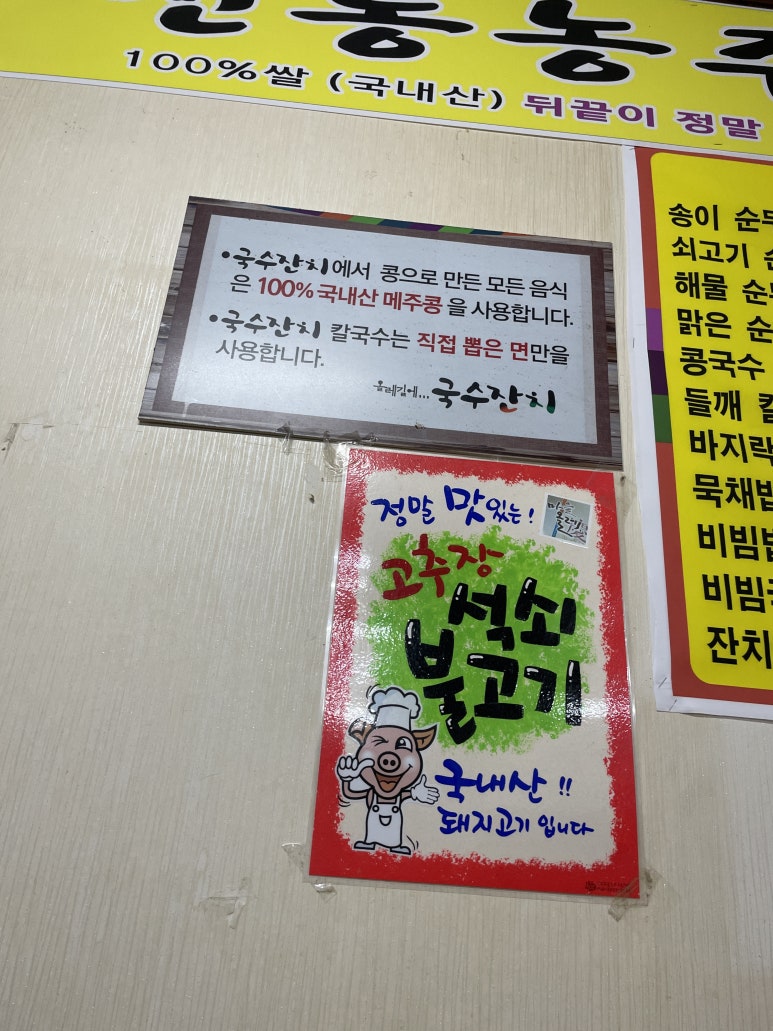 동동주
100%쌀 (국내산) 뒤끝이 정말
•국수잔치에서 콩으로 만든 모든 음식
은 100% 국내산 메주콩 을 사용합니다.
•국수잔치 칼국수는 직접 뽑은 면만을
사용합니다.
올레길에... 국수잔치
정말 맛있는!
고추장
석쇠
불고기
국내산 !!
돼지고기 입니다
송이 순두
쇠고기 순
해물 순두
맑은 순
콩국수
들깨 칼
바지락
묵채밥
비빔밥
비빔국
잔치